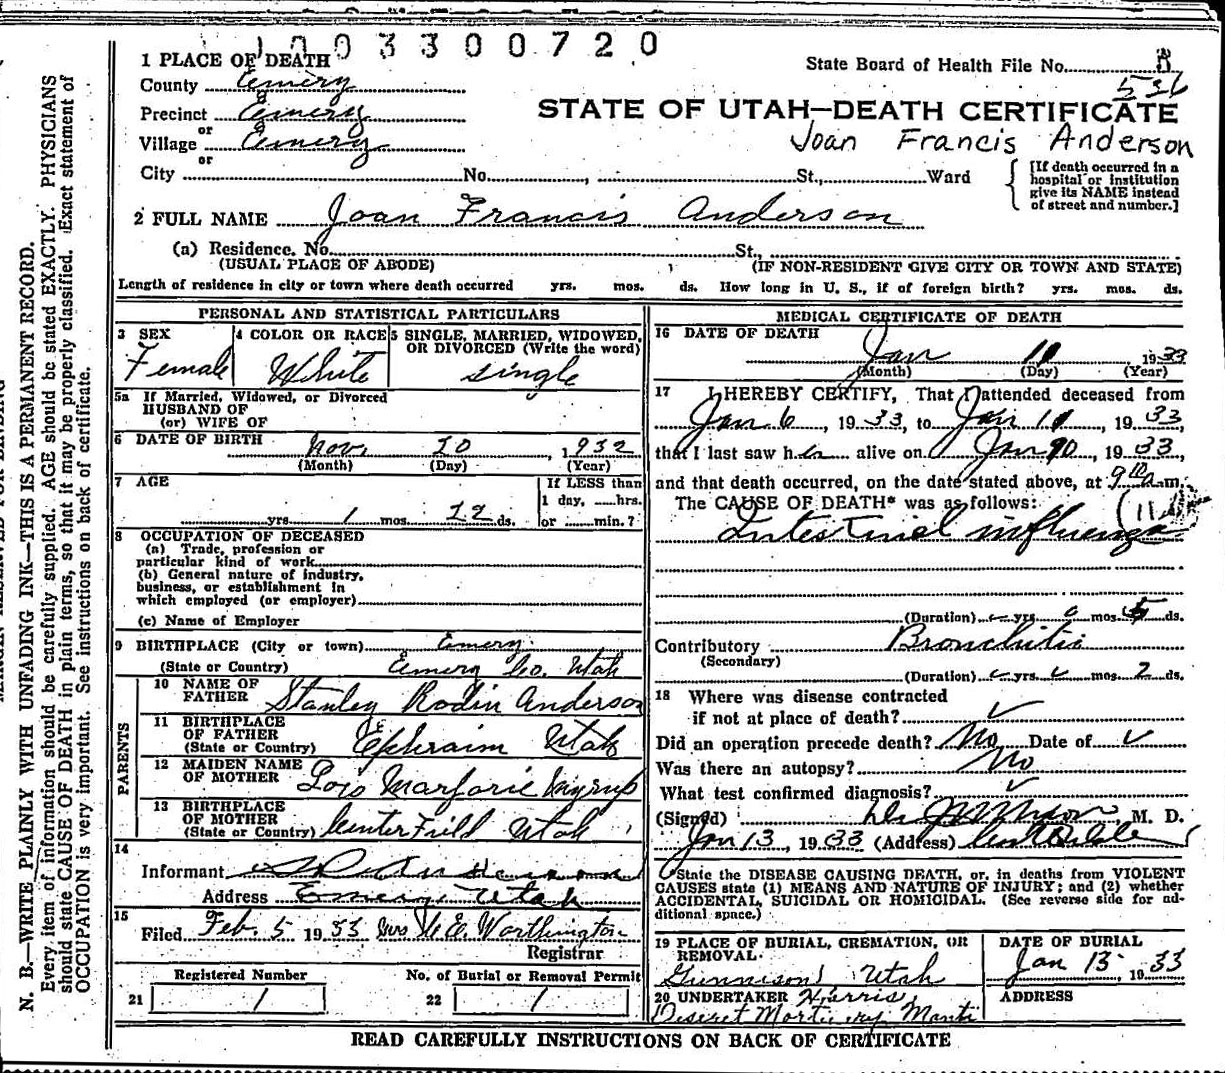 1003300720
1 PLACE OF DEATH
State Board of Health File No. 8
536
County Emery
STATE OF UTAH—DEATH CERTIFICATE
Precinct Emery
or
Joan Francis Anderson
Village Emery
or
City No. , St., Ward
[If death occurred in a
hospital or institution
give its NAME instead
of street and number.]
2 FULL NAME Joan Francis Anderson
(a) Residence. No. St.,
(USUAL PLACE OF ABODE) (IF NON-RESIDENT GIVE CITY OR TOWN AND STATE)
Length of residence in city or town where death occurred yrs. mos. ds. How long in U. S., if of foreign birth? yrs. mos. ds.
PERSONAL AND STATISTICAL PARTICULARS
3 SEX
Female
4 COLOR OR RACE
White
5 SINGLE, MARRIED, WIDOWED,
OR DIVORCED (Write the word)
single
5a If Married, Widowed, or Divorced
HUSBAND OF
(or) WIFE OF
6 DATE OF BIRTH Nov. 20, 1932
(Month) (Day) (Year)
7 AGE
yrs. 1 mos. 22 ds.
If LESS than
1 day, hrs.
or min.?
8 OCCUPATION OF DECEASED
(a) Trade, profession or
particular kind of work
(b) General nature of industry,
business, or establishment in
which employed (or employer)
(c) Name of Employer
9 BIRTHPLACE (City or town) Emery
(State or Country) Emery Co. Utah
PARENTS
10 NAME OF
FATHER Stanley Rodin Anderson
11 BIRTHPLACE
OF FATHER
(State or Country) Ephraim Utah
12 MAIDEN NAME
OF MOTHER Lois Marjorie Myrup
13 BIRTHPLACE
OF MOTHER
(State or Country) CenterField Utah
14
Informant Anderson
Address Emery Utah
15
Filed Feb. 5 1933 Mrs Worthington
Registrar
Registered Number
21 1
No. of Burial or Removal Permit
22 1
MEDICAL CERTIFICATE OF DEATH
16 DATE OF DEATH
Jan 1933
(Month) (Day) (Year)
17 I HEREBY CERTIFY, That I attended deceased from
Jan 6, 1933, to Jan, 1933,
that I last saw her alive on Jan 10, 1933,
and that death occurred, on the date stated above, at 9 10 a.m.
The CAUSE OF DEATH* was as follows:
(11
Intestinal influenza
(Duration) yrs. mos. 5 ds.
Contributory Bronchitis
(Secondary)
(Duration) yrs. mos. 2 ds.
18 Where was disease contracted
if not at place of death? ✓
Did an operation precede death? No Date of ✓
Was there an autopsy? No
What test confirmed diagnosis? ✓
(Signed) M. D.
Jan 13, 1933 (Address) Castle Dale
*State the DISEASE CAUSING DEATH, or, in deaths from VIOLENT
CAUSES state (1) MEANS AND NATURE OF INJURY; and (2) whether
ACCIDENTAL, SUICIDAL OR HOMICIDAL. (See reverse side for ad-
ditional space.)
19 PLACE OF BURIAL, CREMATION, OR
REMOVAL
Gunnison Utah
DATE OF BURIAL
Jan 15 1933
20 UNDERTAKER Harris
Deseret Mortuary Manti
ADDRESS
READ CAREFULLY INSTRUCTIONS ON BACK OF CERTIFICATE
N. B.—WRITE PLAINLY WITH UNFADING INK—THIS IS A PERMANENT RECORD.
Every item of information should be carefully supplied. AGE should be stated EXACTLY. PHYSICIANS
should state CAUSE OF DEATH in plain terms, so that it may be properly classified. Exact statement of
OCCUPATION is very important. See instructions on back of certificate.